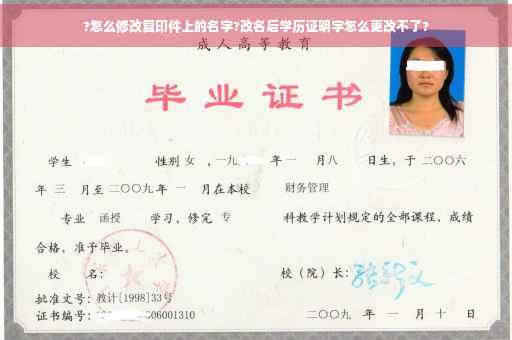 ?怎么修改复印件上的名字?改名后学历证明字怎么更改不了?
成人高等教育
毕业证书
学生 性别 女 ,一九 年 一 月 八 日生,于 二〇〇六
年 三 月至 二〇〇九 年 一 月在本校 财务管理
专业 函授 学习,修完 专 科教学计划规定的全部课程,成绩
合格,准予毕业。
校 名: 校(院)长:
批准文号:教计[1998]33号
证书编号: 06001310 二〇〇九 年 一 月 十 日